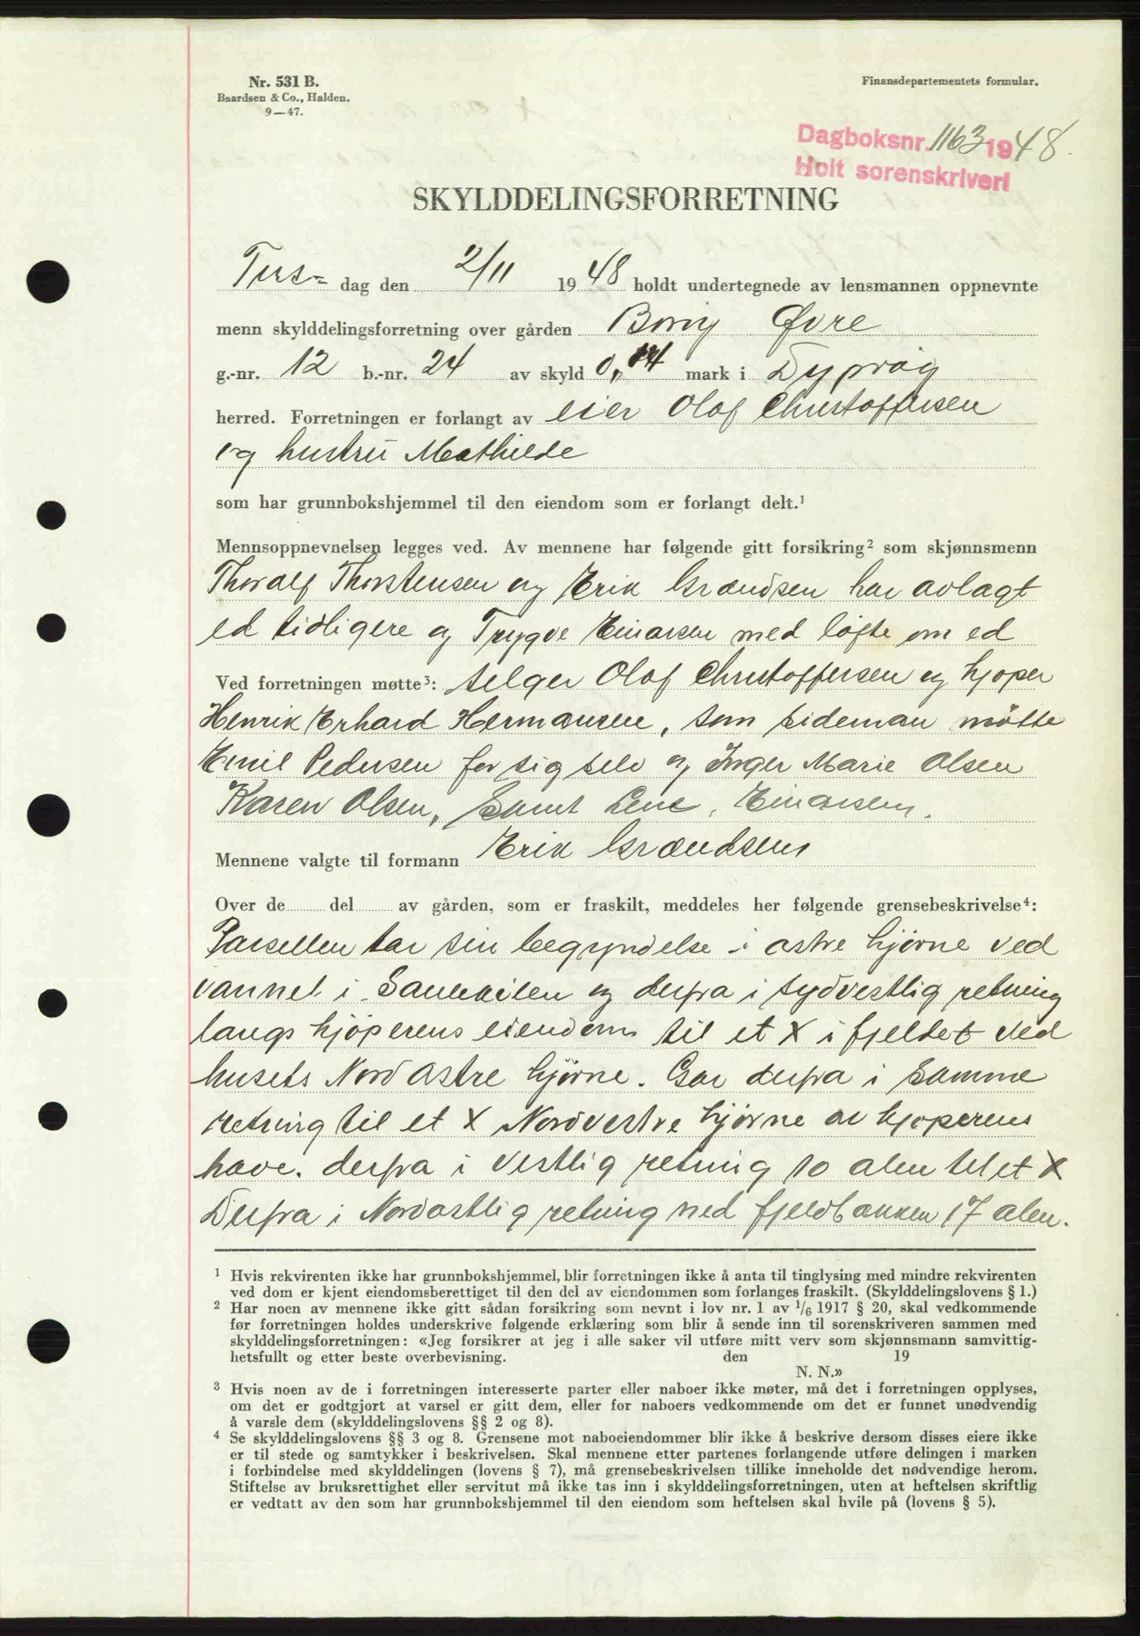 Nr. 531 B.
Baardsen & Co., Halden.
9—47.
Finansdepartementets formular.
Dagboksnr. 1163 1948.
Holt sorenskriveri
SKYLDDELINGSFORRETNING
Tirs- dag den 2/11 1948 holdt undertegnede av lensmannen oppnevnte
menn skylddelingsforretning over gården Borøy Øvre
g.-nr. 12 b.-nr. 24 av skyld 0,14 mark i Dypvåg
herred. Forretningen er forlangt av eier Olaf Christoffersen
og hustru Mathilde
som har grunnbokshjemmel til den eiendom som er forlangt delt.¹
Mennsoppnevnelsen legges ved. Av mennene har følgende gitt forsikring² som skjønnsmenn
Thoralf Thorstensen og Erik Grændsen har avlagt
ed tidligere og Trygve Einarsen med løfte om ed
Ved forretningen møtte³: selger Olaf Christoffersen og kjøper
Henrik Erhard Hermansen, som sideman møtte
Emil Pedersen for sig selv og Inger Marie Olsen
Karen Olsen, Samt Lene, Einarsen,
Mennene valgte til formann Erik Grændsen
Over de del av gården, som er fraskilt, meddeles her følgende grensebeskrivelse⁴:
Parsellen tar sin begyndelse i østre hjørne ved
vannet i og derfra i sydvestlig retning
langs kjøperens eiendom til et X i fjeldet ved
husets Nordøstre hjørne. Går derfra i samme
retning til et X Nordvestre hjørne av kjøperens
have. derfra i vestlig retning 10 alen til et X
Derfra i Nordøstlig retning ned fjeldbakken 17 alen.
¹ Hvis rekvirenten ikke har grunnbokshjemmel, blir forretningen ikke å anta til tinglysing med mindre rekvirenten
ved dom er kjent eiendomsberettiget til den del av eiendommen som forlanges fraskilt. (Skylddelingslovens § 1.)
² Har noen av mennene ikke gitt sådan forsikring som nevnt i lov nr. 1 av 1/6 1917 § 20, skal vedkommende
før forretningen holdes underskrive følgende erklæring som blir å sende inn til sorenskriveren sammen med
skylddelingsforretningen: «Jeg forsikrer at jeg i alle saker vil utføre mitt verv som skjønnsmann samvittig-
hetsfullt og etter beste overbevisning. den 19
N. N.»
³ Hvis noen av de i forretningen interesserte parter eller naboer ikke møter, må det i forretningen opplyses,
om det er godtgjort at varsel er gitt dem, eller for naboers vedkommende om det er funnet unødvendig
å varsle dem (skylddelingslovens §§ 2 og 8).
⁴ Se skylddelingslovens §§ 3 og 8. Grensene mot naboeiendommer blir ikke å beskrive dersom disses eiere ikke
er til stede og samtykker i beskrivelsen. Skal mennene etter partenes forlangende utføre delingen i marken
i forbindelse med skylddelingen (lovens § 7), må grensebeskrivelsen tillike inneholde det nødvendige herom.
Stiftelse av bruksrettighet eller servitut må ikke tas inn i skylddelingsforretningen, uten at heftelsen skriftlig
er vedtatt av den som har grunnbokshjemmel til den eiendom som heftelsen skal hvile på (lovens § 5).